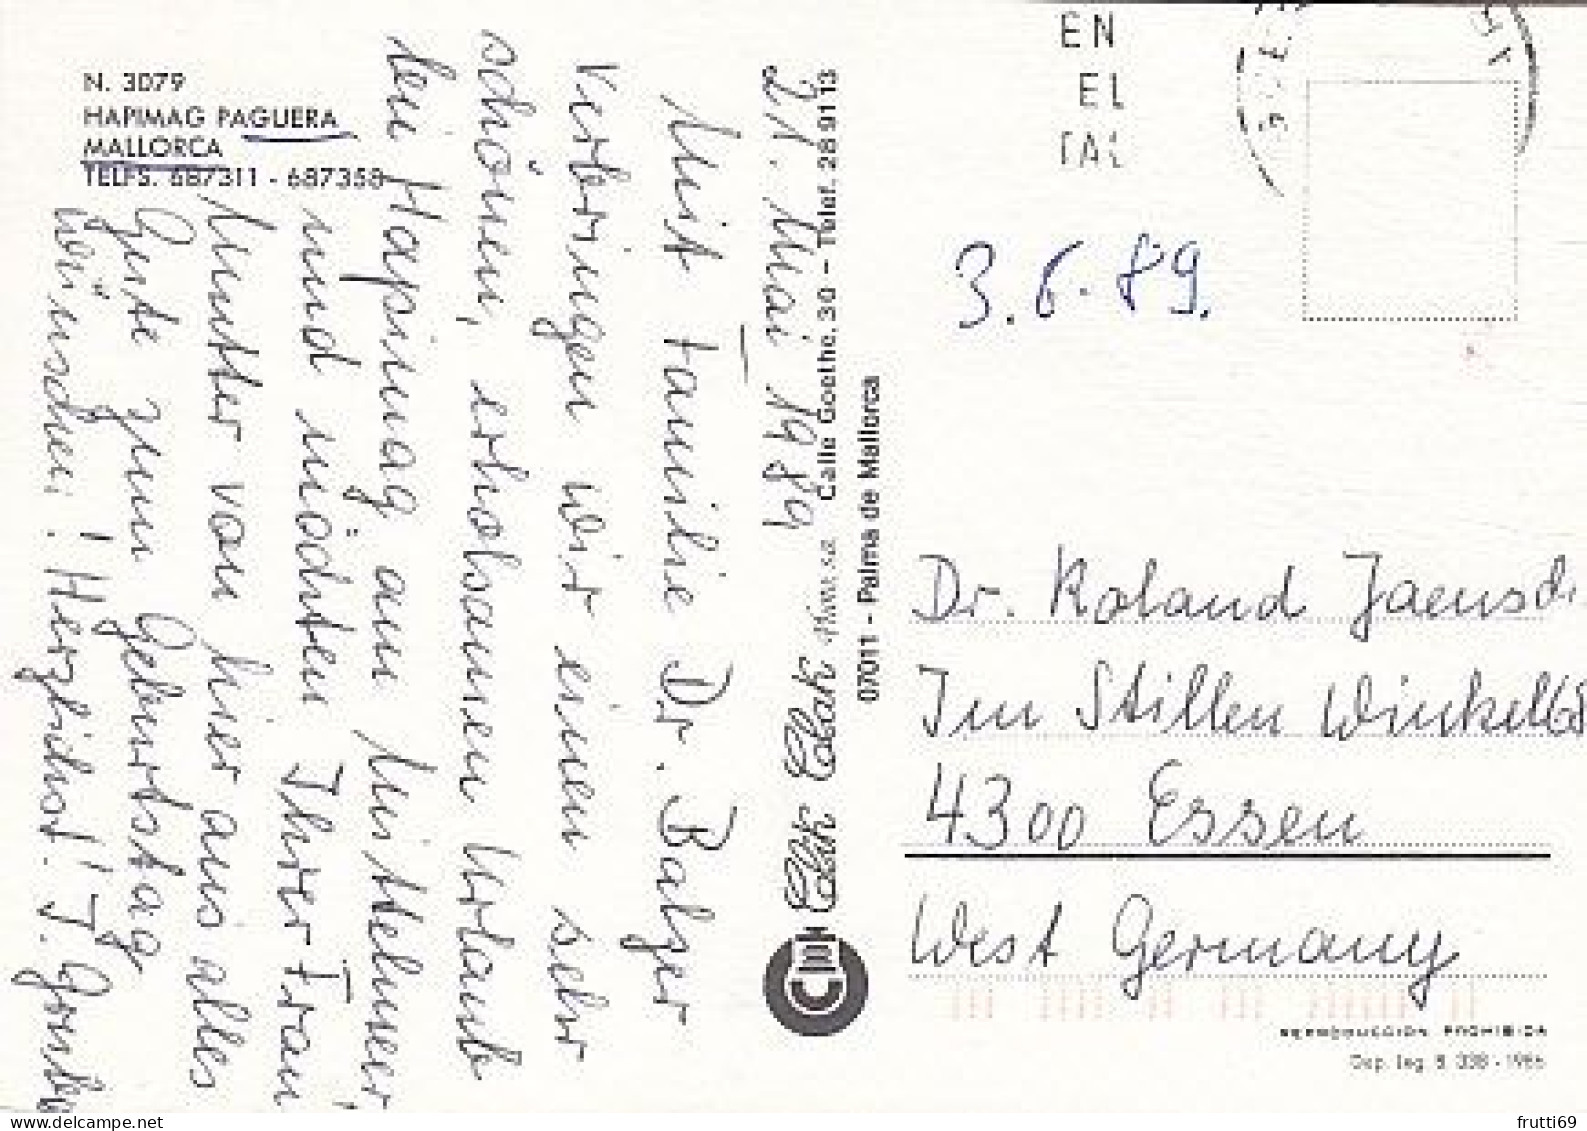 N. 3079
HAPIMAG PAGUERA
MALLORCA
TELFS. 687311 - 687358
21. Mai 1989
Mit Familie Dr. Balzer
verbringen wir einen sehr
schönen, erholsamen Urlaub
bei Hapimag am Mittelmeer,
und möchten Ihrer Frau
Mutter von hier aus alles
Gute zum Geburtstag
wünschen! Herzlichst! J.
Click Clak
Calle Goethe, 30 - Telef. 28 91 13
07011 - Palma de Mallorca
EN
EL
3.6.89.
Dr. Roland Jaensch
Im Stillen Winkel 68
4300 Essen
West Germany
REPRODUCCION PROHIBIDA
Dep. Leg. B. 038 - 1986
frutti69